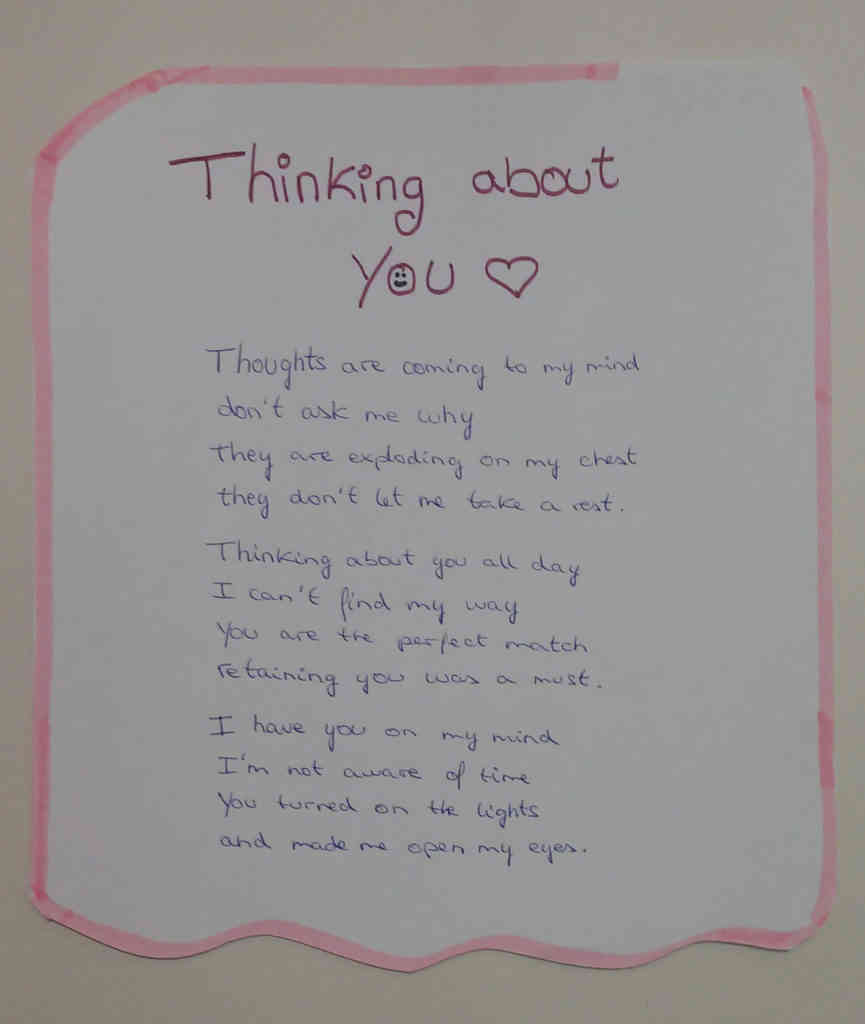 Thinking about
You ♡
Thoughts are coming to my mind
don't ask me why
they are exploding on my chest
they don't let me take a rest.
Thinking about you all day
I can't find my way
You are the perfect match
retaining you was a must.
I have you on my mind
I'm not aware of time
You turned on the lights
and made me open my eyes.